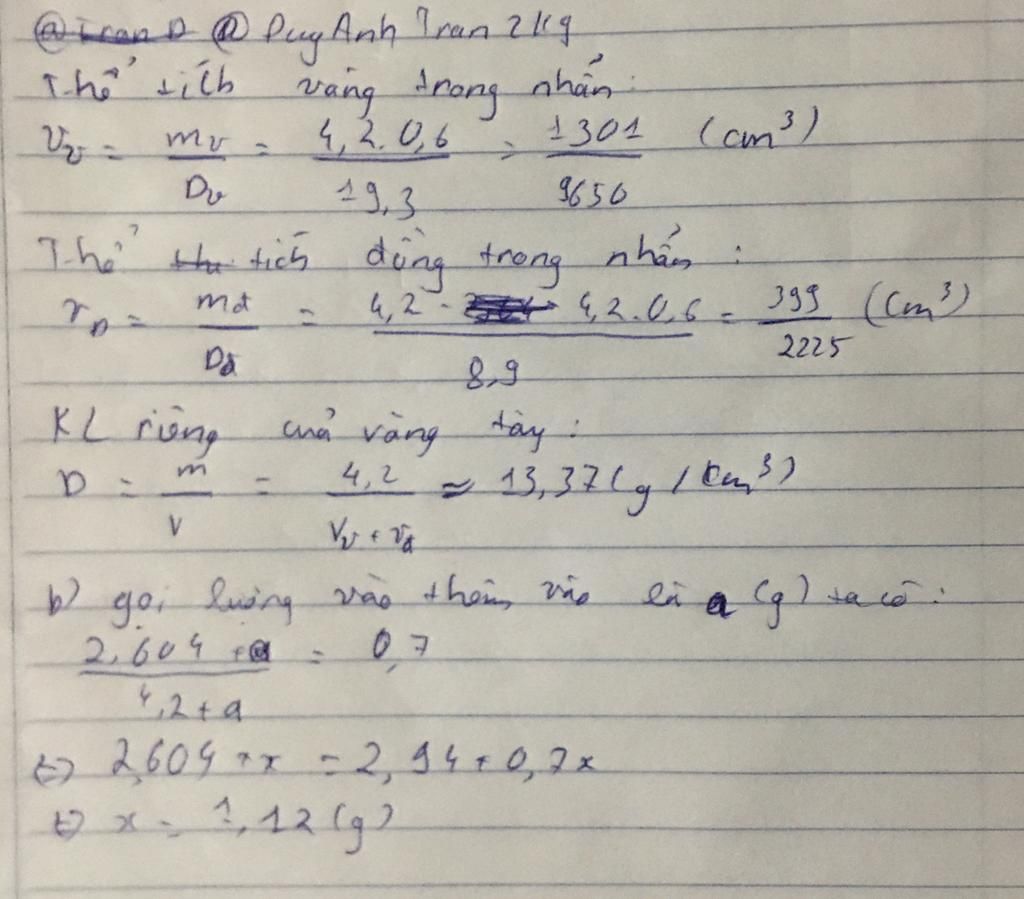 @ DuyAnh Tran 2k9
Thể tích vàng trong nhẫn:
Vv = mv / Dv = 4,2.0,6 / 19,3 = 1301 / 9650 (cm³)
Thể tích đồng trong nhẫn:
VD = mđ / Dđ = 4,2 - 4,2.0,6 / 8,9 = 399 / 2225 (cm³)
KL riêng của vàng tây:
D = m / V = 4,2 / Vv + Vđ ≈ 13,37 (g / cm³)
b) gọi lượng vào thêm vào là a (g) ta có:
2,604 + a / 4,2 + a = 0,7
⇔ 2,604 + x = 2,94 + 0,7x
⇔ x = 1,12 (g)